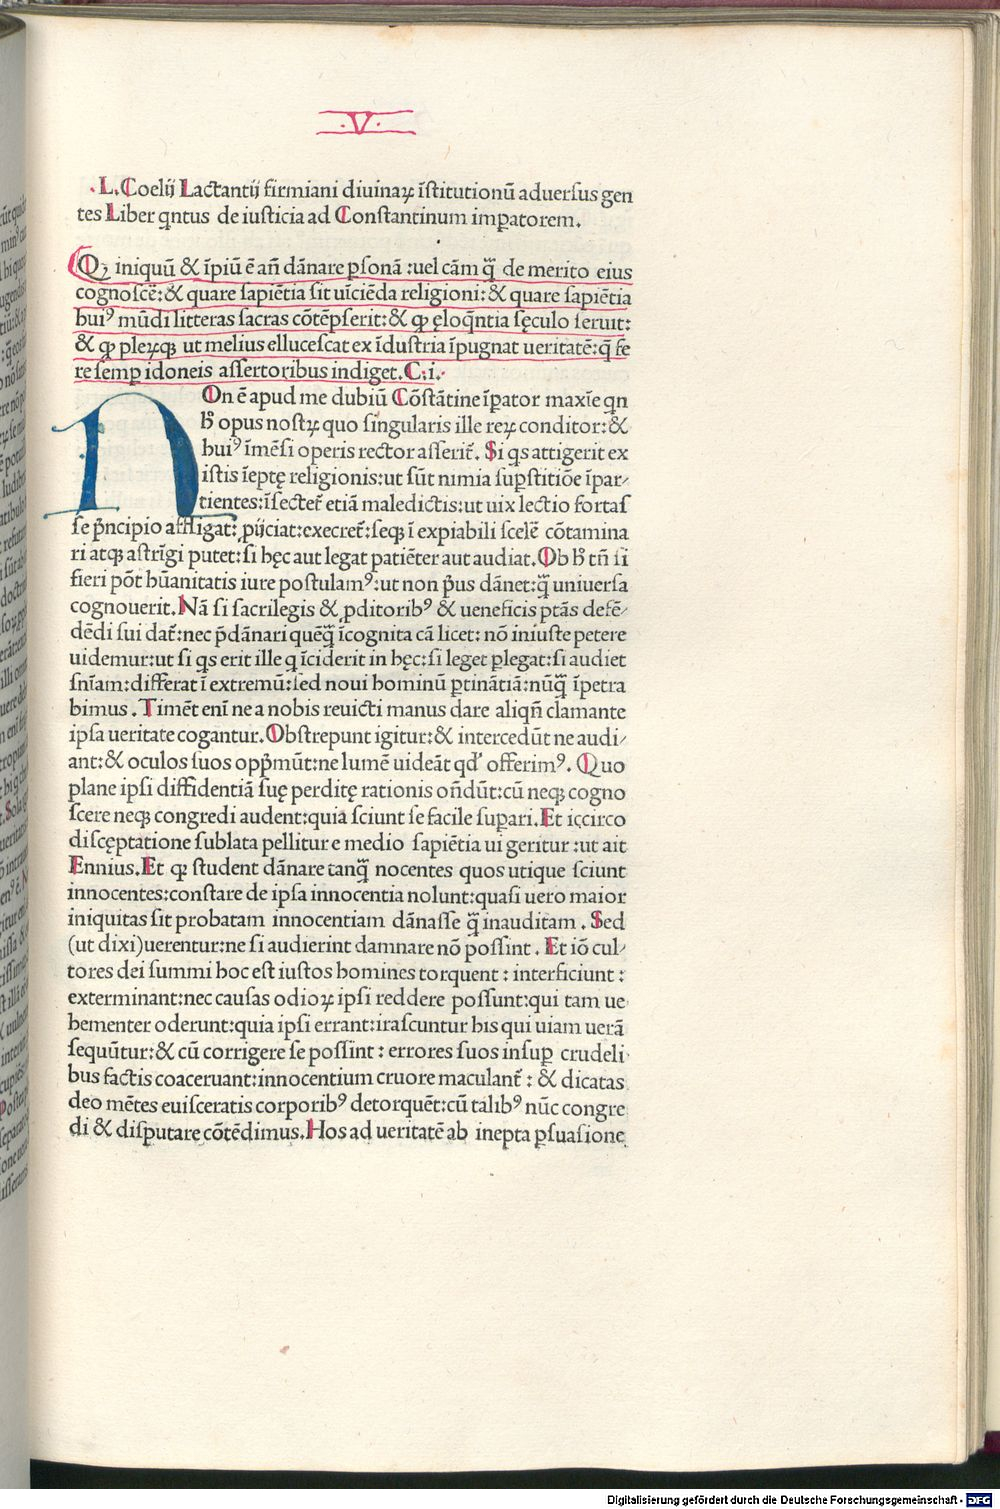 .V.
.L.Coelij Lactantij firmiani diuinaꝝ ĩstitutionũ aduersus gen
tes Liber qntus de iusticia ad Constantinum imꝑatorem.
Qꝫ iniquũ & ĩpiũ ẽ añ dãnare ꝑsonã :uel cãm q̃ꝫ de merito eius
cognoscẽ:& quare sapiẽtia sit uĩciẽda religioni:& quare sapiẽtia
huiꝰ mũdi litteras sacras cõtẽpserit:& ꝙ ęloq̃ntia sęculo seruit:
& ꝙ pleꝝqꝫ ut melius ellucescat ex ĩdustria ĩpugnat ueritatẽ:q̃ fe
re semꝑ idoneis assertoribus indiget.C.i.
NOn ẽ apud me dubiũ Cõstãtine ĩꝑator maxĩe qn
h̃ opus nostꝝ quo singularis ille reꝝ conditor:&
huiꝰ ĩmẽsi operis rector asserit̃. Si qs attigerit ex
istis ĩeptę religionis:ut sũt nimia suꝑstitiõe ĩpar-
tientes:ĩsectet̃ etiã maledictis:ut uix lectio fortas
se p̃ncipio affligat:ꝓijciat:execret̃:seqꝫ ĩ expiabili scelẽ cõtamina
ri atqꝫ astrĩgi putet:si hęc aut legat patiẽter aut audiat.Ob h̃ tñ si
fieri põt hũanitatis iure postulamꝰ:ut non p̃us dãnet:q̃ꝫ uniuersa
cognouerit.Nã si sacrilegis & ꝓditoribꝰ & ueneficis ptãs defẽ-
dẽdi sui dat̃:nec p̃dãnari quẽq̃ꝫ ĩcognita cã licet: nõ iniuste petere
uidemur:ut si qs erit ille q ĩciderit in hęc:si leget ꝑlegat:si audiet
sñiam:differat ĩ extremũ:sed noui hominũ ꝑtinãtiã:nũq̃ꝫ ĩpetra
bimus . Timẽt enĩ ne a nobis reuicti manus dare aliqñ clamante
ipsa ueritate cogantur.Obstrepunt igitur:& intercedũt ne audi-
ant:& oculos suos opp̃mũt:ne lumẽ uideãt qd' offerimꝰ. Quo
plane ipsi diffidentiã suę perditę rationis oñdũt:cũ neqꝫ cogno
scere neqꝫ congredi audent:quia sciunt se facile suꝑari.Et iccirco
discęptatione sublata pellitur e medio sapiẽtia ui geritur :ut ait
Ennius.Et ꝙ student dãnare tanq̃ꝫ nocentes quos utique sciunt
innocentes:constare de ipsa innocentia nolunt:quasi uero maior
iniquitas sit probatam innocentiam dãnasse q̃ꝫ inauditam . Sed
(ut dixi)uerentur:ne si audierint damnare nõ possint . Et iõ cul-
tores dei summi hoc est iustos homines torquent : interficiunt :
exterminant:nec causas odioꝝ ipsi reddere possunt:qui tam ue
hementer oderunt:quia ipsi errant:irascuntur his qui uiam uerã
sequũtur:& cũ corrigere se possint : errores suos insuꝑ crudeli
bus factis coaceruant:innocentium cruore maculant̃ : & dicatas
deo mẽtes euisceratis corporibꝰ detorquẽt:cũ talibꝰ nũc congre
di & disputare cõtẽdimus.Hos ad ueritatẽ ab inepta ꝑsuasione
Digitalisierung gefördert durch die Deutsche Forschungsgemeinschaft - DFG